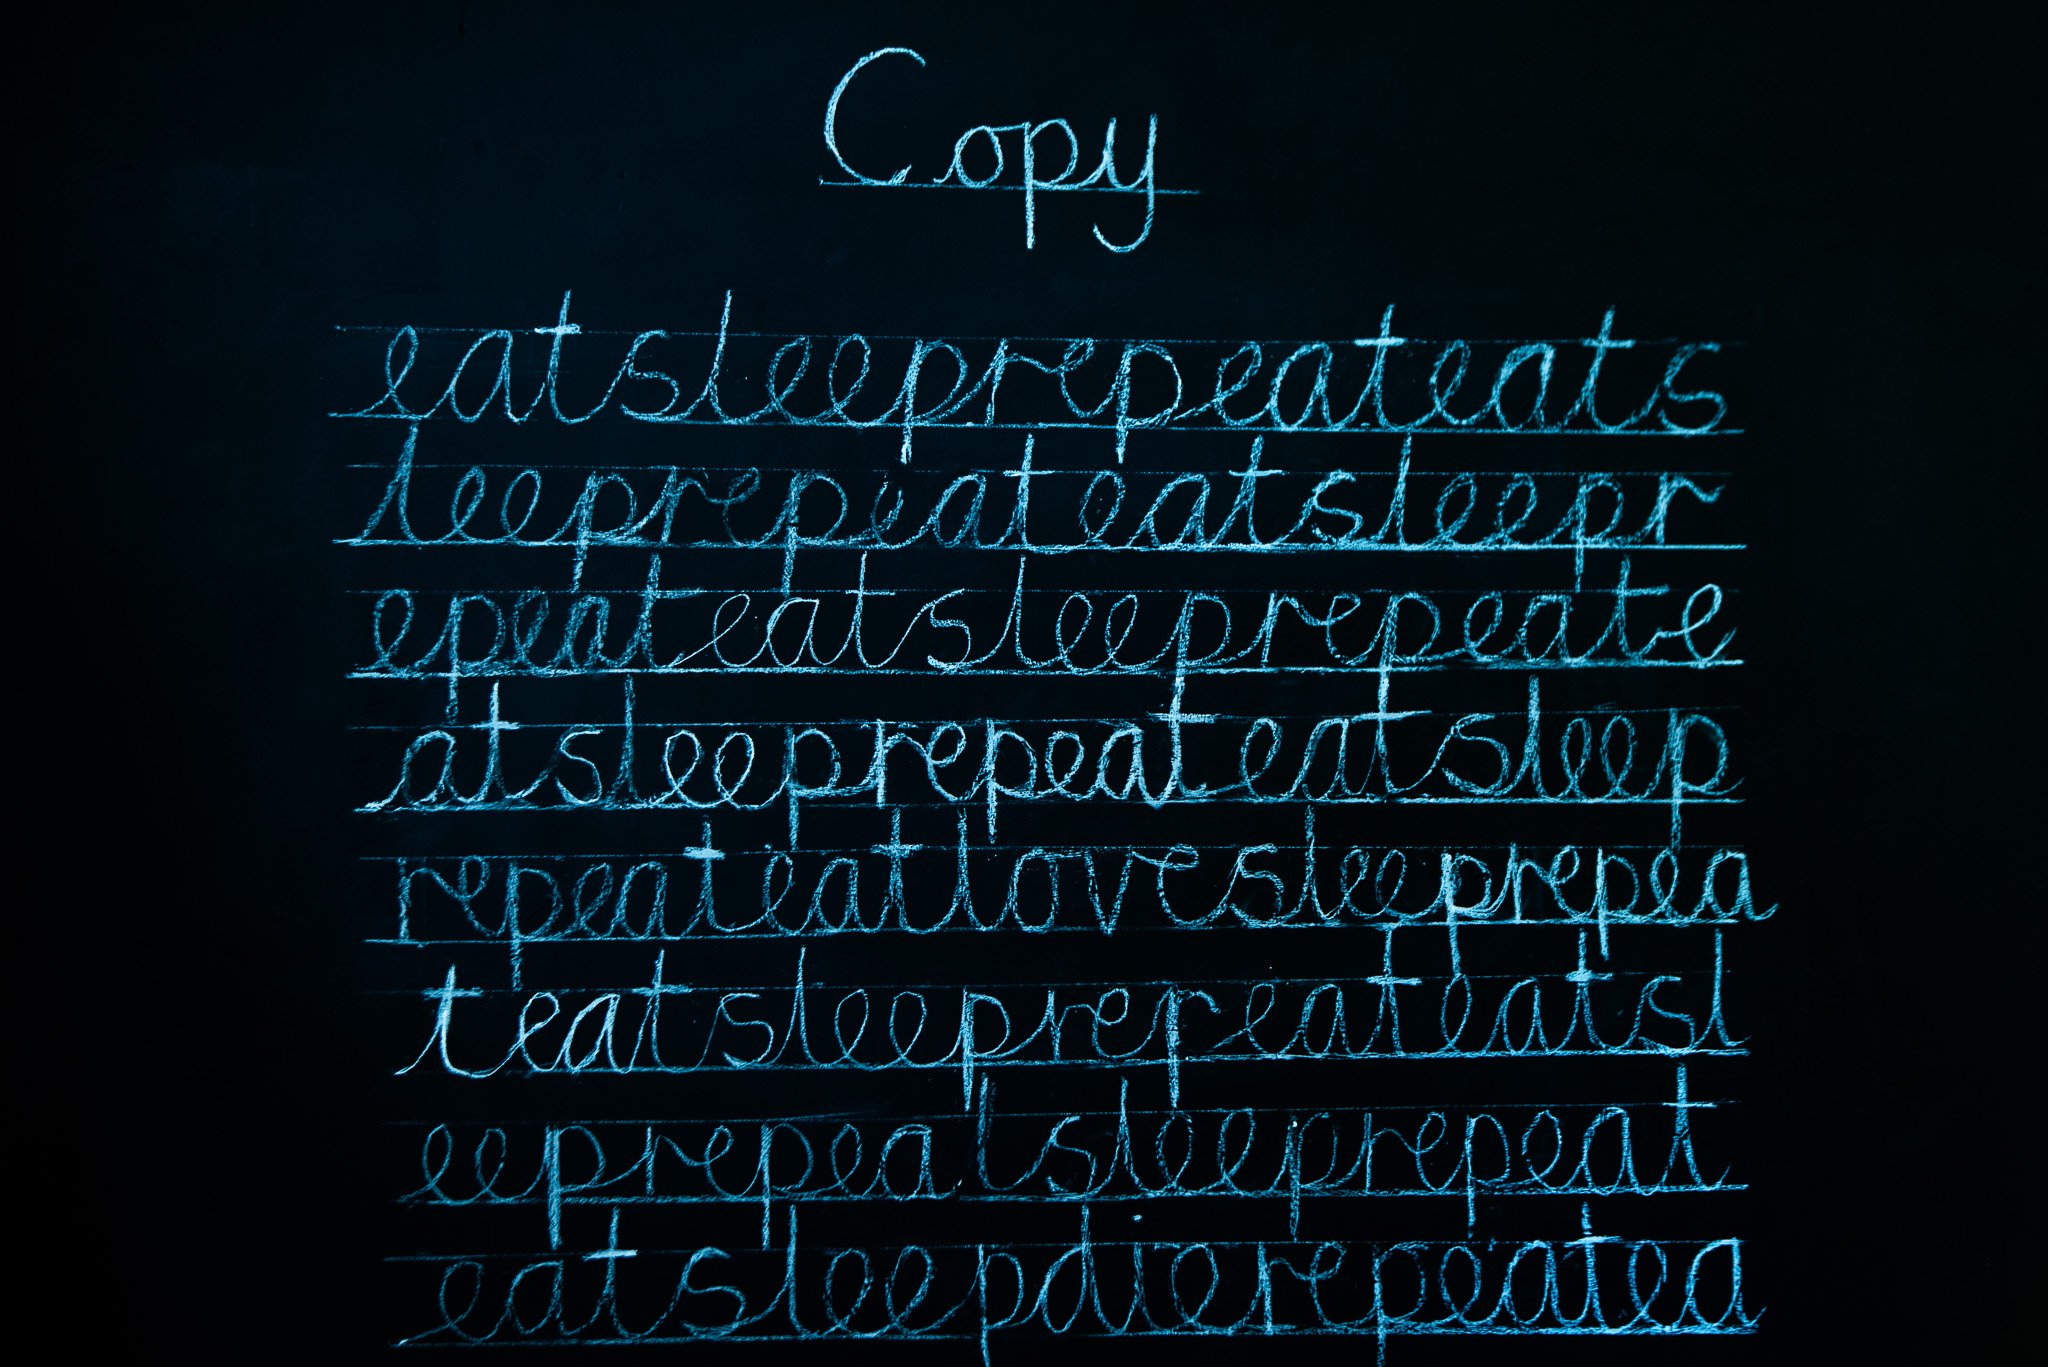 Copy
eatsleeprepeateats
leeprepeateatsleepr
epeateatsleeprepeate
atsleeprepeateatsleep
repeateatlovesleeprepea
teatsleeprepeateatsl
eeprepeatsleeprepeat
eatsleepdierepeatea